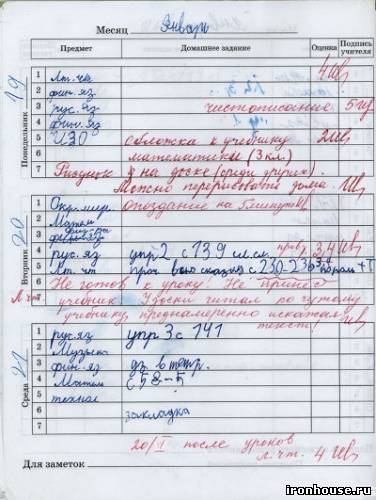 Месяц Январь
Предмет Домашнее задание Оценка Подпись учителя
Понедельник 19
1 Лт. чт. 4
2 фин. яз
3 рус. яз чистописание 5
4 фин. яз
5 ИЗО обложка к учебнику 2
6 математики (3 кл.)
7 Рисунок на доске (среди других).
Можно перерисовать дома.
Вторник 20
1 Окр. мир. опоздание на 5 минут!
2 Матем
3
4 рус. яз упр 2 с 139 3,4
5 Лт. чт проч с. 230-236
6 Не готов к уроку! Не принёс
Л. чт. 7 учебник. У доски читал по чужому
учебнику, преднамеренно искажал
текст!
Среда 21
1 рус. яз упр 3 с 141
2 Музыка
3 фин. яз дз в тетр.
4 Матем с 58-5
5 технол
6 закладка
7
20/I после уроков
Л. чт. 4
Для заметок
ironhouse.ru